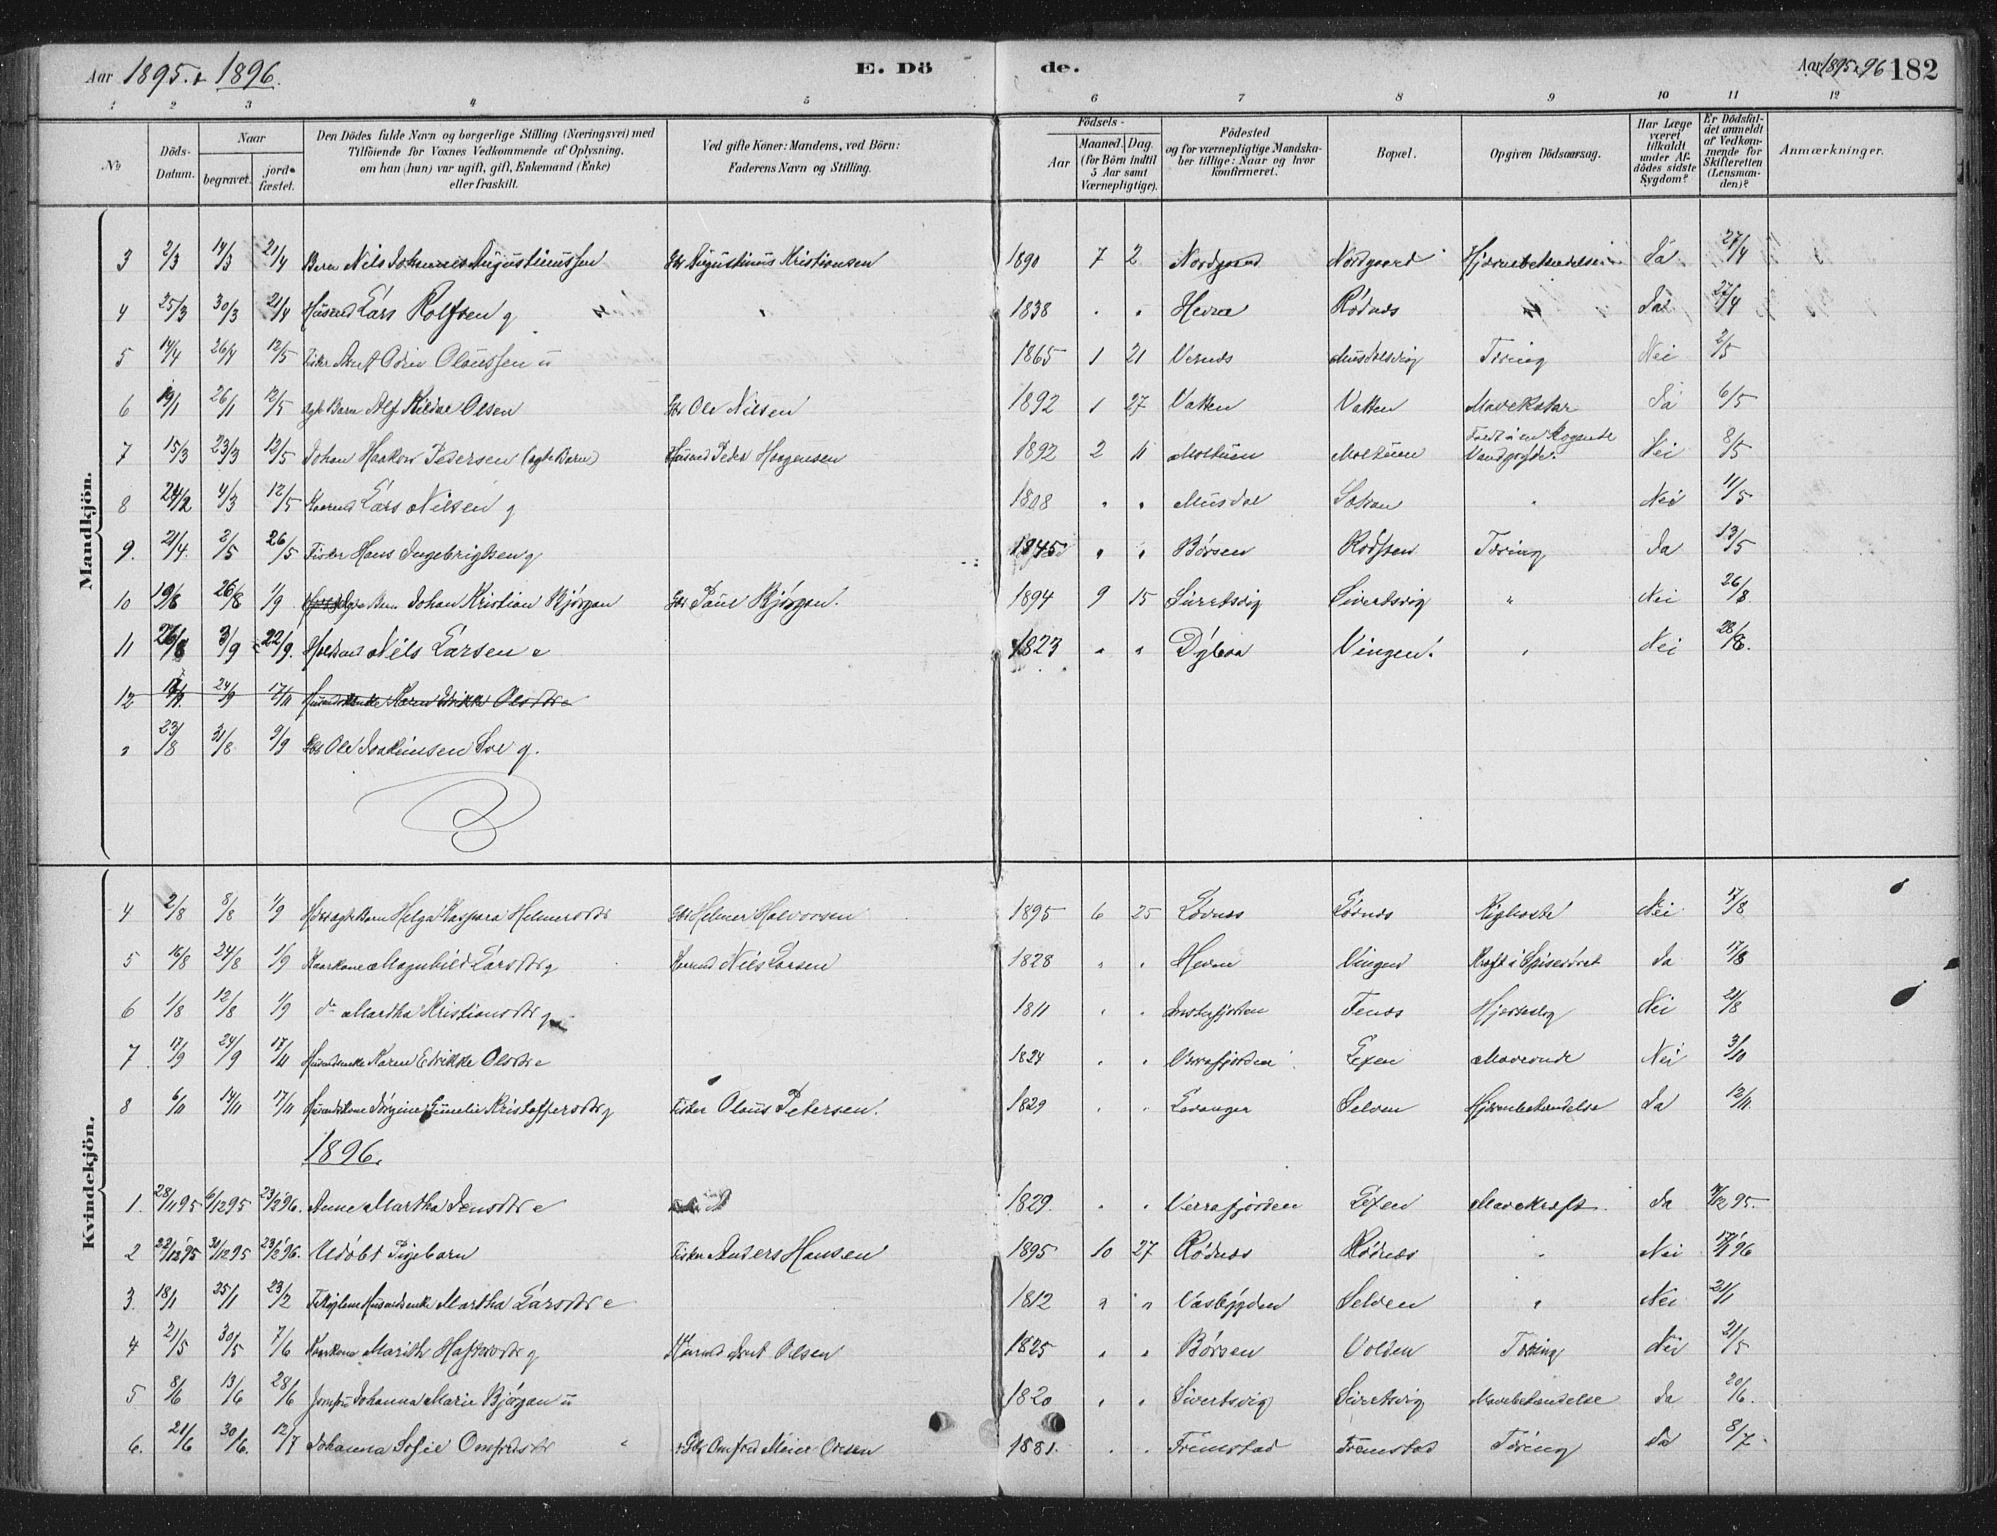 Aar 1895 & 1896.
E. Dö
de.
Aar 1895 & 96 182
1 2 3 4 5 6 7 8 9 10 11 12
No
Döds-Datum.
Naar
begravet.
jord-fæstet.
Den Dödes fulde Navn og borgerlige Stilling (Næringsvei) med
Tilföiende for Voxnes Vedkommende af Oplysning,
om han (hun) var ugift, gift, Enkemand (Enke)
eller fraskilt.
Ved gifte Koner: Mandens, ved Börn:
Faderens Navn og Stilling.
Födsels-
Aar
Maaned. Dag.
(for Börn indtil
5 Aar samt
Værnepligtige).
Födested
og for værnepligtige Mandska-
ber tillige: Naar og hvor
konfirmeret.
Bopæl.
Opgiven Dödsaarsag.
Har Læge
været
tilkaldt
under Af-
dödes sidste
Sygdom?
Er Dödsfal-
det anmeldt
af Vedkom-
mende for
Skifteretten
(Lensman-
den)?
Anmærkninger.
Mandkjön.
3 2/3 14/3 21/4 Barn Nils Johannes Augustinussen Augustinus Kristiansen 1890 7 2 Nordgaard Nordgaard Hjernebetændelse Ja 27/4
4 25/3 30/3 21/4 Husmd Lars Rolfsen g 1838 " " Hevne Rødnæs " Ja 27/4
5 14/4 26/4 12/5 Fisker Arnt Odin Olaussen u 1865 1 21 Vernæs Musdalsvig Tæring Nei 2/5
6 19/1 26/1 12/5 Ægte Barn Alf Olsen Gbr Ole Nilsen 1892 1 27 Vatten Vatten Mavekatar Ja 6/5
7 15/3 23/3 12/5 Johan Haakon Pedersen (ægte Barn) Husmd Peder Haagensen 1892 2 11 Moltuen Moltuen Faldt i en kogende Vandgryde. Nei 8/5
8 24/2 4/3 12/5 Kaarmd Lars Nilsen g 1808 " " Musdal " Nei 11/5
9. 21/4. 2/5 26/5 Fisker Hans Ingebrigtsen g 1845 " " Børsen Tæring Ja 13/5
10 19/8 26/8 1/9 Barn Johan Kristian Bjørgan Gbr Paul Bjørgan. 1894 9 15 Sivertsvig Sivertsvig " Nei 26/8
11 27/8 3/9 22/9. Nils Larsen e 1823 " " Vingen. " Nei 28/8.
12 17/9 24/9 17/11 Husmdsenke Karen Edrikke Olsdtr e
" 23/8 31/8 9/9 Gbr Ole Joakimsen g.
Kvindekjön.
4 2/8 8/8 1/9 ægte Barn Helga Kaspara Helmersdtr Gbr Helmer Halvorsen 1895 6 25 Lødnæs Lødnæs Kighoste Nei 17/8
5 16/8 24/8 1/9 Kaarkone Magnhild Larsdtr g Kaarmd Nils Larsen 1828 " " Hevne Vingen Kræft i Spiserøret Ja 17/8
6 1/8 12/8 1/9 do Martha Kristiansdtr g 1811 " " Tenæs Nei 21/8
7 17/9 24/9 17/11 Husmdsenke Karen Edrikke Olsdtr e 1824 " " Verrafjorden Lexen Maveonde Nei 3/10
8 6/11 14/11 17/11 Husmdskone Jørgine Emelie Kristoffersdtr g Fisker Olaus Petersen. 1829 " " Levanger Selven Hjernebetændelse Ja 12/11.
1896.
1. 28/11 95 6/12 95 23/2 96. Anne Martha Jensdtr e 1829. " " Verrafjorden Lexen Mavekræft Ja 12 95.
2 22/12 95 31/12 95 23/2 96. Udøbt Pigebarn Fisker Anders Hansen 1895 10 27 Rødnæs Rødnæs " Nei 17/1 96
3. 18/1 25/1 23/2 Husmdsenke Martha Larsdtr e 1812 " " Aasbygden Selven " Nei 21/1
4 21/5 30/5 7/6 Kaarkone Marith Haftorsdtr g Kaarmd Arnt Olsen 1825 " " Børsen Volden Tæring Nei 21/5
5 8/6 13/6 28/6 Jomfru Johanna Marie Bjørgan u 1820 " " Sivertsvig Sivertsvig Mavebetændelse Ja 20/6.
6. 21/6 30/6. 12/7 Johanna Sofie Omfredsdtr Gbr Omfred Meier Olsen 1881. " " Fremstad Fremstad Tæring Ja 8/7.